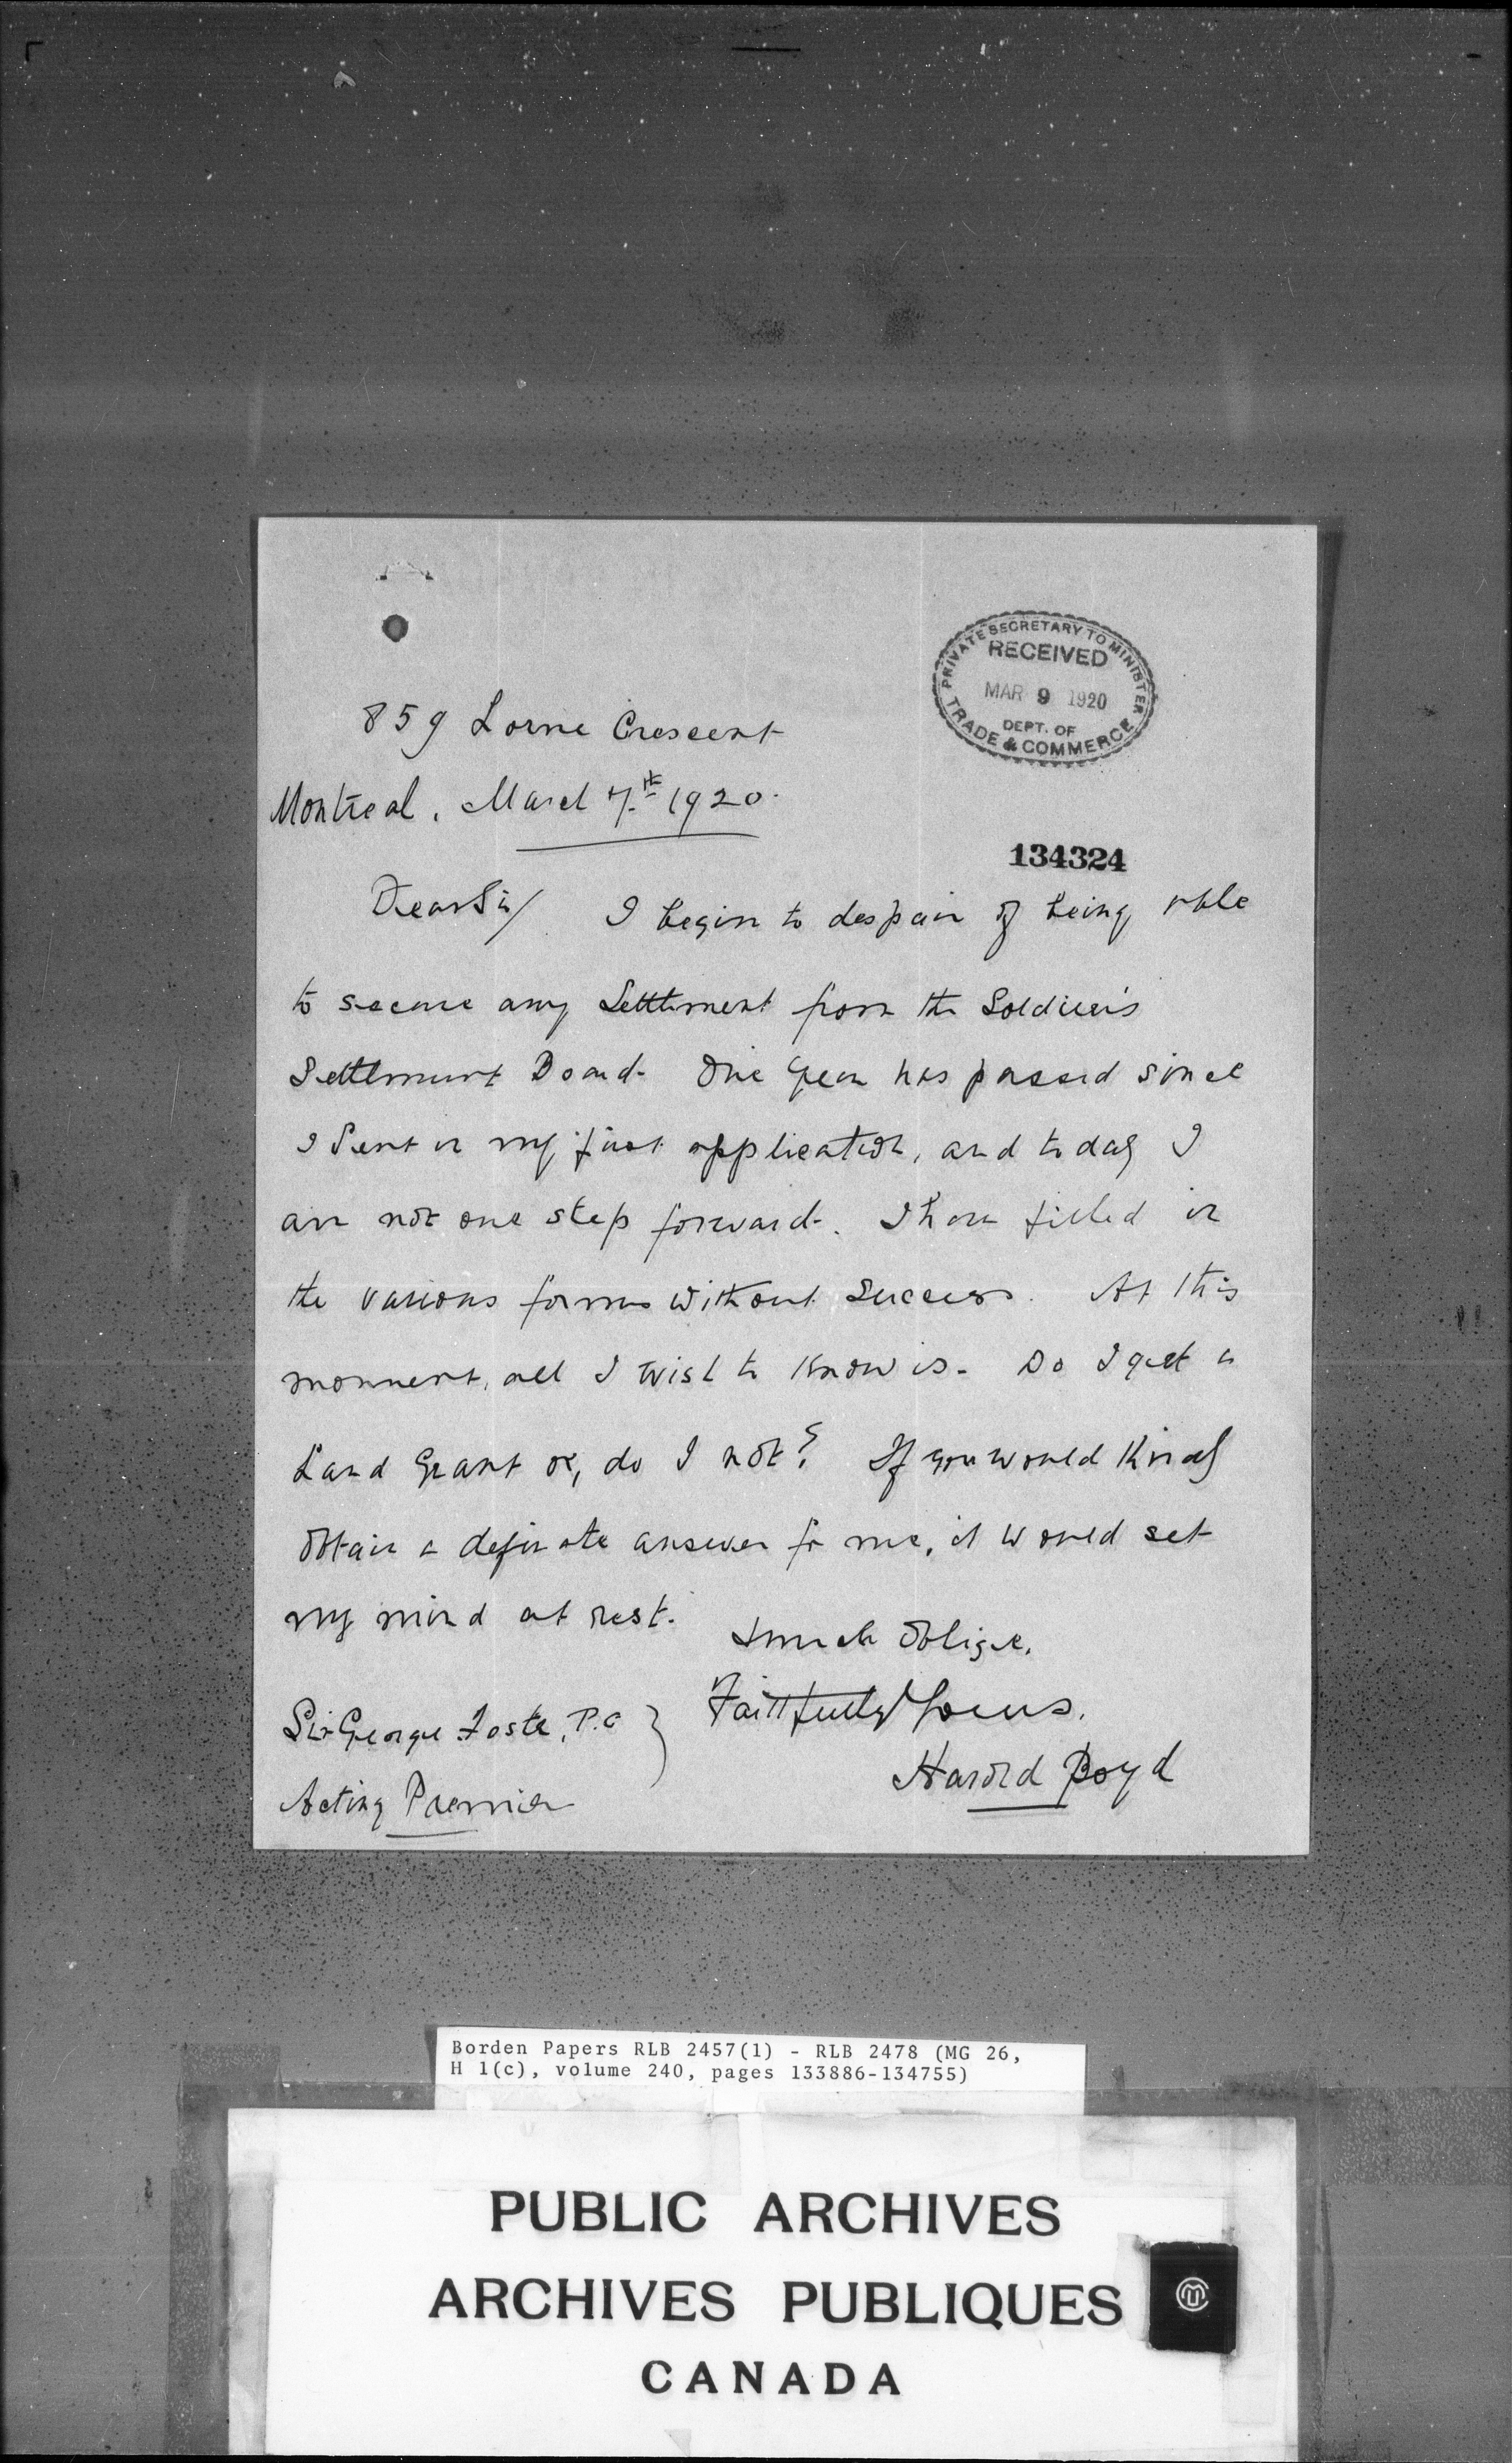 PRIVATE SECRETARY TO MINISTER
RECEIVED
MAR 9 1920
DEPT. OF
TRADE & COMMERCE
859 Lorne Crescent
Montreal, March 7th 1920.
134324
Dear Sir/ I begin to despair of being able
to secure any Settlement from the Soldiers
Settlement Board. One year has passed since
I sent in my first application, and today I
am not one step forward. I have filled in
the various forms without success. At this
moment, all I wish to know is - Do I get a
Land Grant or, do I not? If you would kindly
obtain a definate answer for me, it would set
my mind at rest.
& much oblige.
Faithfully Yours.
Harold Boyd
Sir George Foster, P.C
Acting Premier
Borden Papers RLB 2457(1) - RLB 2478 (MG 26,
H 1(c), volume 240, pages 133886-134755)
PUBLIC ARCHIVES
ARCHIVES PUBLIQUES
CANADA